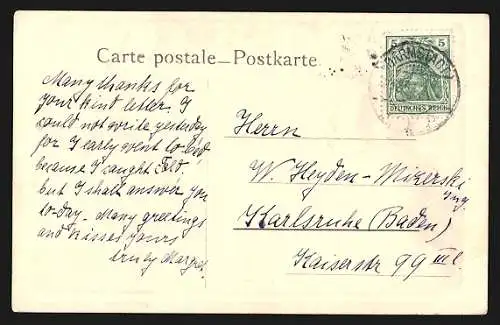 Carte postale — Postkarte
5 5
DEUTSCHES REICH
DARMSTADT
Many thanks for
your kind letter. I
could not write yesterday
for I early went to bed
because I caught
but I shall answer you
to-day. Many greetings
and kisses yours
truly Margot
Herrn
W. Heyden-Mizerski
Ing.
Karlsruhe (Baden)
Kaiserstr 99 III l.